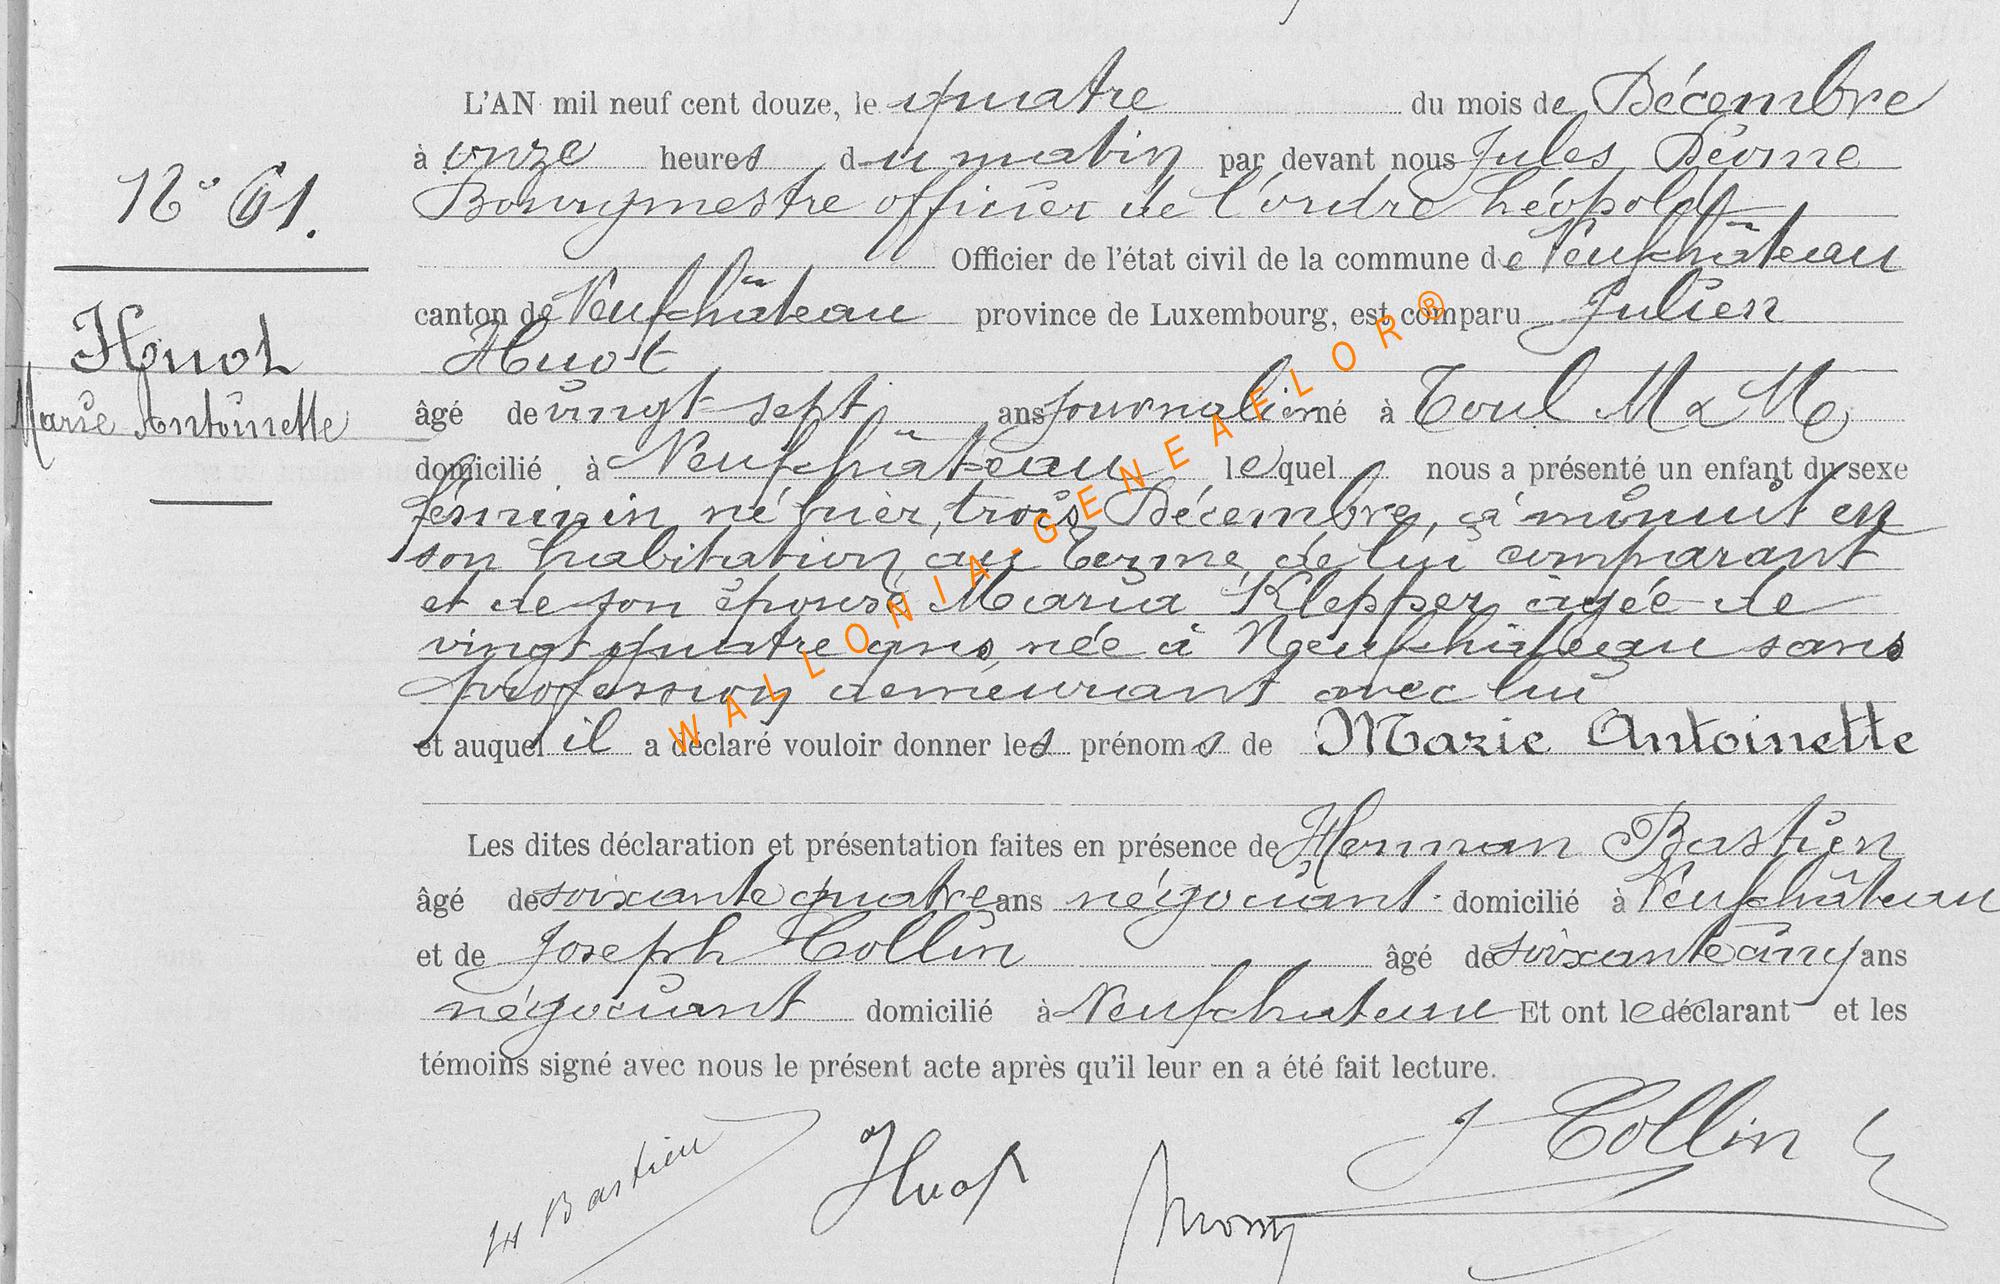 L'AN mil neuf cent douze, le quatre du mois de Décembre
à onze heures du matin par devant nous Jules
Bourgmestre officier de l'ordre Léopold
N° 61.
Officier de l'état civil de la commune de Neufchâteau
canton de Neufchâteau province de Luxembourg, est comparu Julien
Huot
Huot
Marie Antoinette
âgé de vingt sept ans journalier né à Toul M & M
domicilié à Neufchâteau lequel nous a présenté un enfant du sexe
féminin né hier, trois Décembre, à minuit en
son habitation, au Terme, de lui comparant
et de son épouse Maria Klepper âgée de
vingt quatre ans, née à Neufchâteau sans
profession demeurant avec lui
et auquel il a déclaré vouloir donner les prénoms de Marie Antoinette
Les dites déclaration et présentation faites en présence de Herman Bastien
âgé de soixante quatre ans négociant domicilié à Neufchâteau
et de Joseph Collin âgé de soixante cinq ans
négociant domicilié à Neufchateau Et ont le déclarant et les
témoins signé avec nous le présent acte après qu'il leur en a été fait lecture.
J Collin
H Bastien
Huot
WALLONIA-GENEAFLOR®